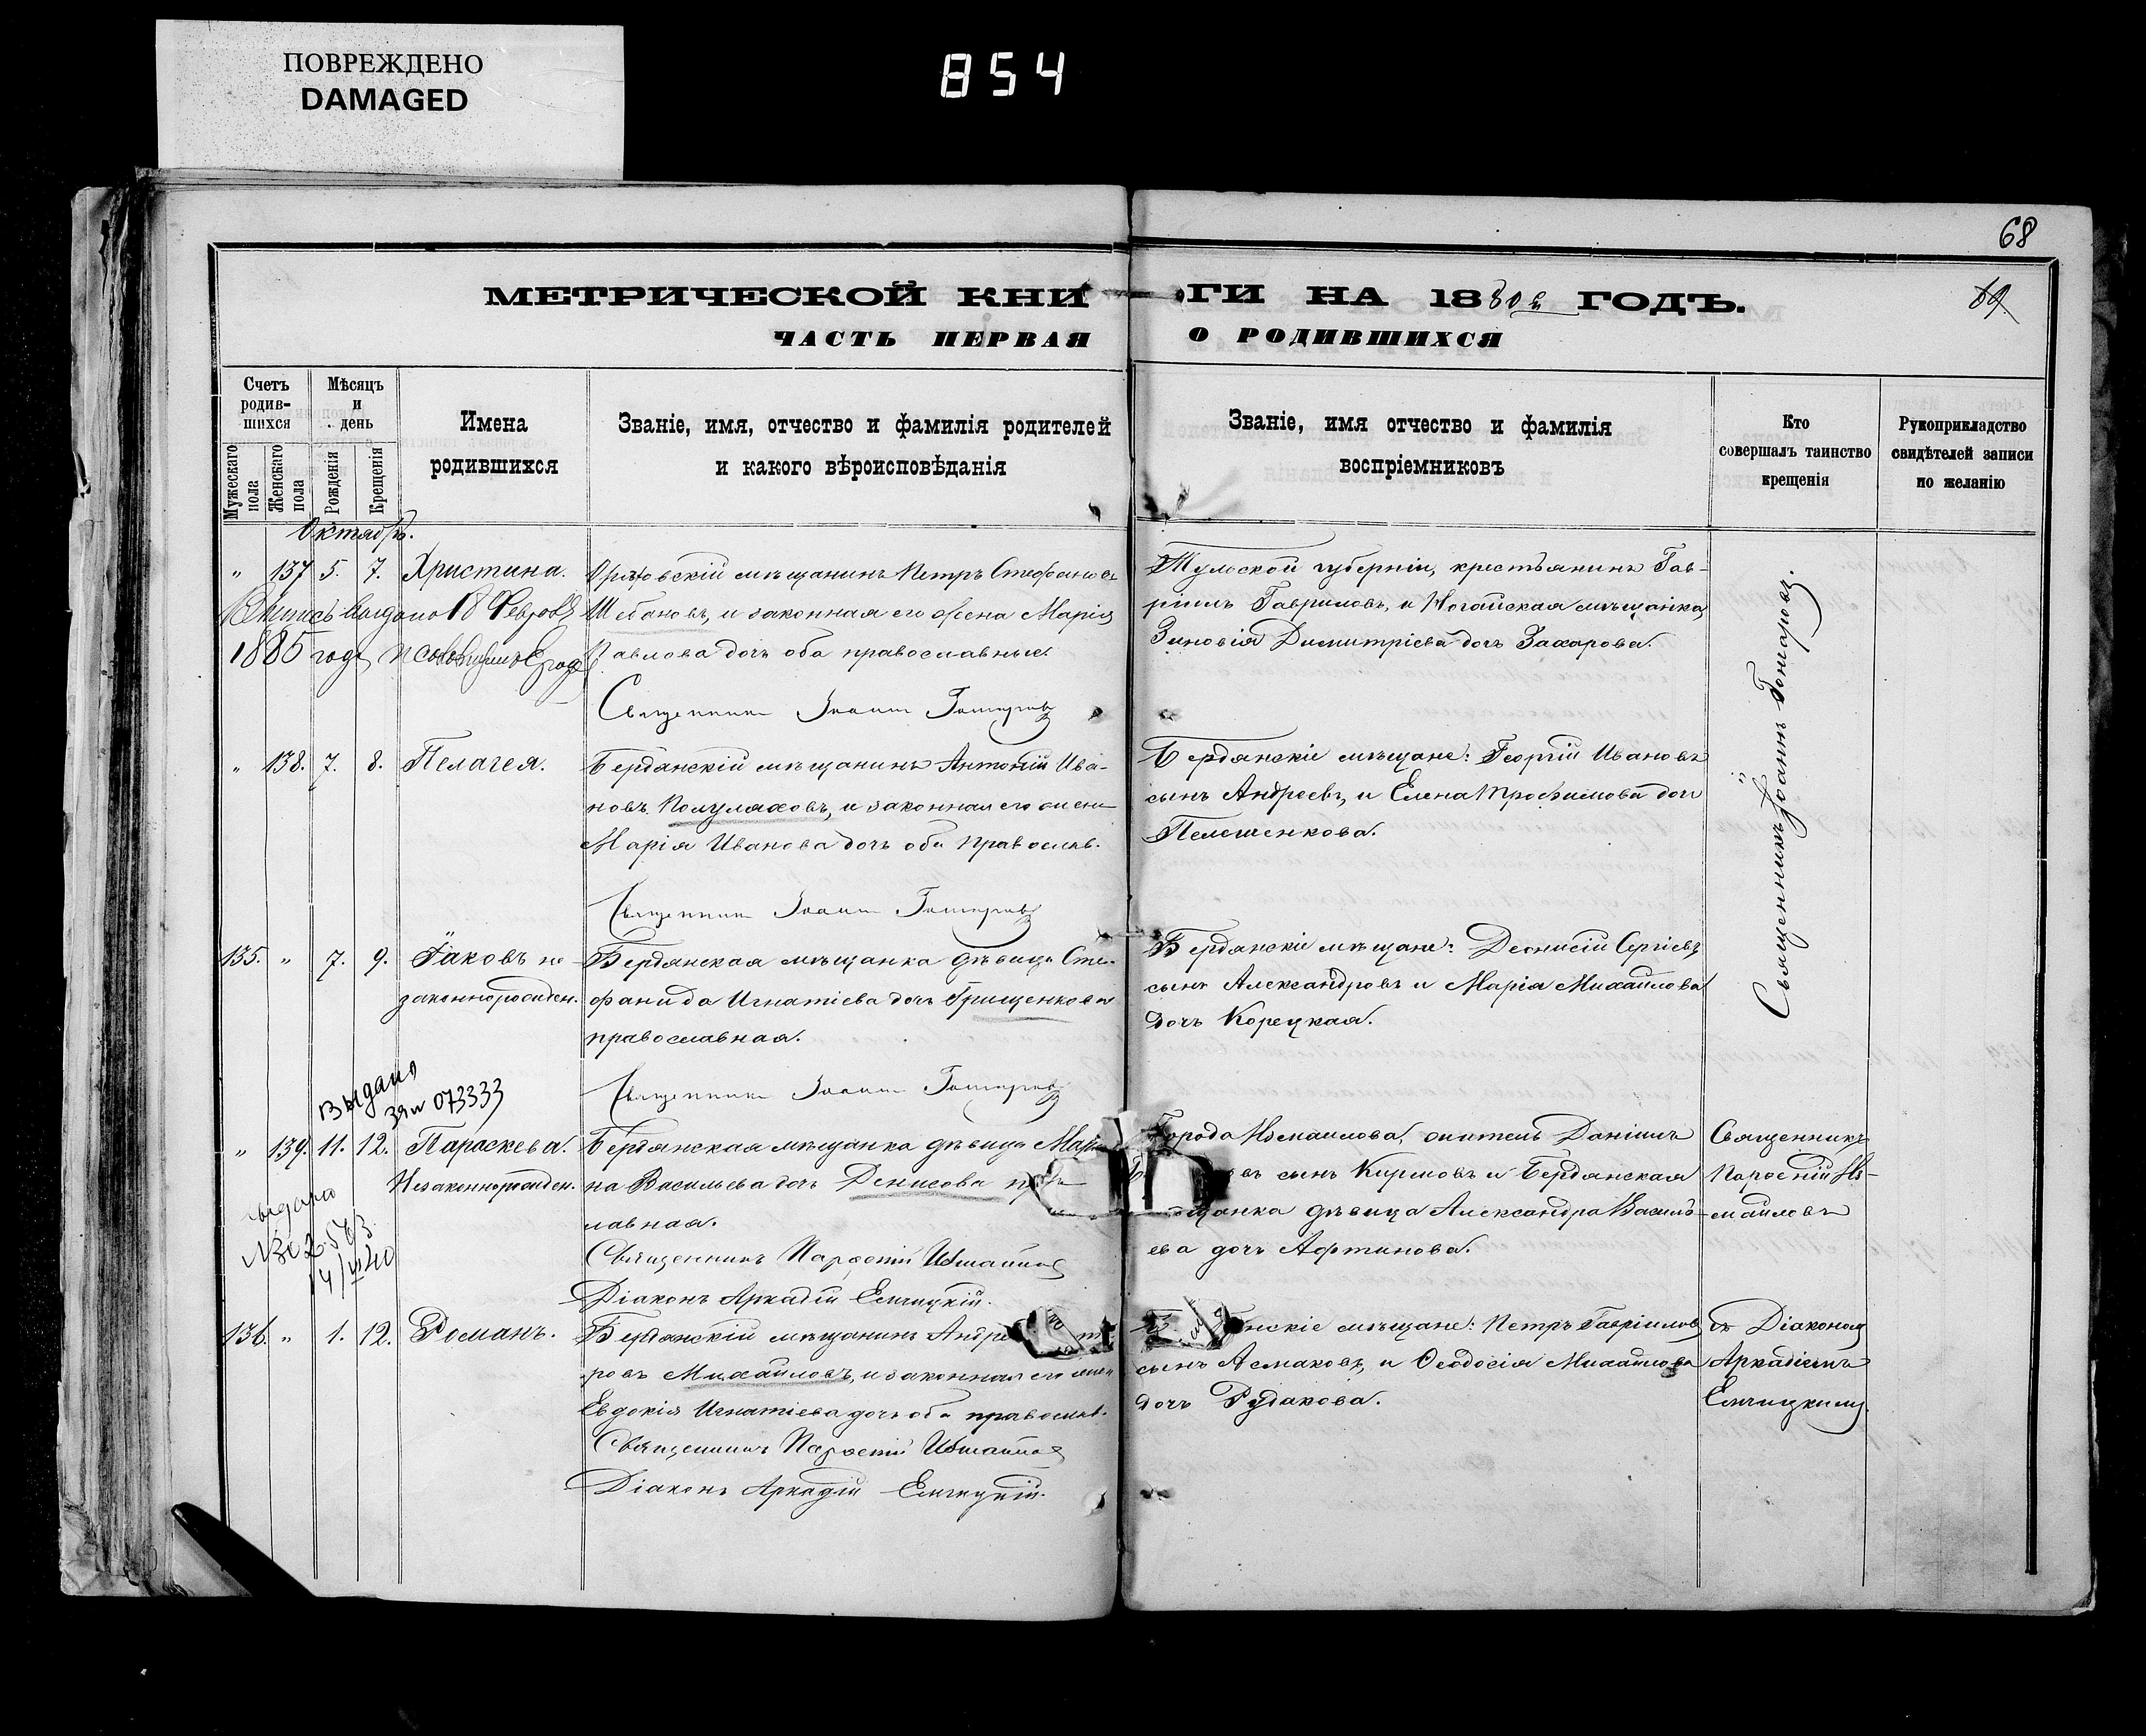 ПОВРЕЖДЕНО
DAMAGED
854
68
69
МЕТРИЧЕСКОЙ КНИ ГИ НА 1880й ГОДЪ.
ЧАСТЬ ПЕРВАЯ О РОДИВШИХСЯ
Счетъ родив-шихся
Мужескаго пола
Женскаго пола
Мѣсяцъ и день
Рожденія
Крещенія
Имена родившихся
Званіе, имя, отчество и фамилія родителей
и какого вѣроисповѣданія
Званіе, имя отчество и фамилія
воспріемниковъ
Кто
совершалъ таинство
крещенія
Рукоприкладство
свидѣтелей записи
по желанію
Октябрь.
„ 137 5. 7. Христина.
Орѣховскій мѣщанинъ Петръ Стефановъ
Шебановъ, и законная его жена Марія
Павлова дочь оба православные.
Выпись выдана 18 Февраля
1885 года
Священникъ Іоаннъ Гончаровъ
Тульской губерніи, крестьянинъ Гав-
ріилъ Гавриловъ, и Ногайская мѣщанка,
Зиновія Димитріева дочь Захарова.
Священникъ Іоаннъ Гончаровъ.
„ 138. 7. 8. Пелагея.
Бердянскій мѣщанинъ Антоній Ива-
новъ Полуляховъ, и законная его жена
Марія Иванова дочь оба православ.
Священникъ Іоаннъ Гончаровъ
Бердянскіе мѣщане: Георгій Ивановъ
сынъ Андреевъ, и Елена Трофимова доч
Пелешенкова.
135. „ 7. 9. Іаковъ не
законнорожден.
Бердянская мѣщанка дѣвица Сте-
фанида Игнатіева дочь Грищенкова
православная.
Священникъ Іоаннъ Гончаровъ
Бердянскіе мѣщане: Деонисій Сергіевъ
сынъ Александровъ и Марія Михайлова
дочь Корецкая.
выдано
073333
„ 139. 11. 12. Параскева.
Незаконнорожден.
Бердянская мѣщанка дѣвица
на Васильева дочь Денисова
лавная.
Священникъ Парѳеній Измайловъ
Діаконъ Аркадій Елчицкій.
Города Измаилова, житель Даніилъ
въ сынъ Кириловъ и Бердянская
щанка дѣвица Александра Василь-
ева дочь Афтинова.
Священникъ
Парѳеній Из-
майловъ
136. „ 1. 12. Романъ.
Бердянскій мѣщанинъ Андре
ровъ Михайловъ, и законная его жен
Евдокія Игнатіева дочь оба православ.
Священникъ Парѳеній Измайловъ
Діаконъ Аркадій Елчицкій.
нскіе мѣщане: Петръ Гавріиловъ
сынъ Асмаковъ, и Ѳеодосія Михайлова
дочь Рудакова.
съ Діакономъ
Аркадіемъ
Елчицкимъ.